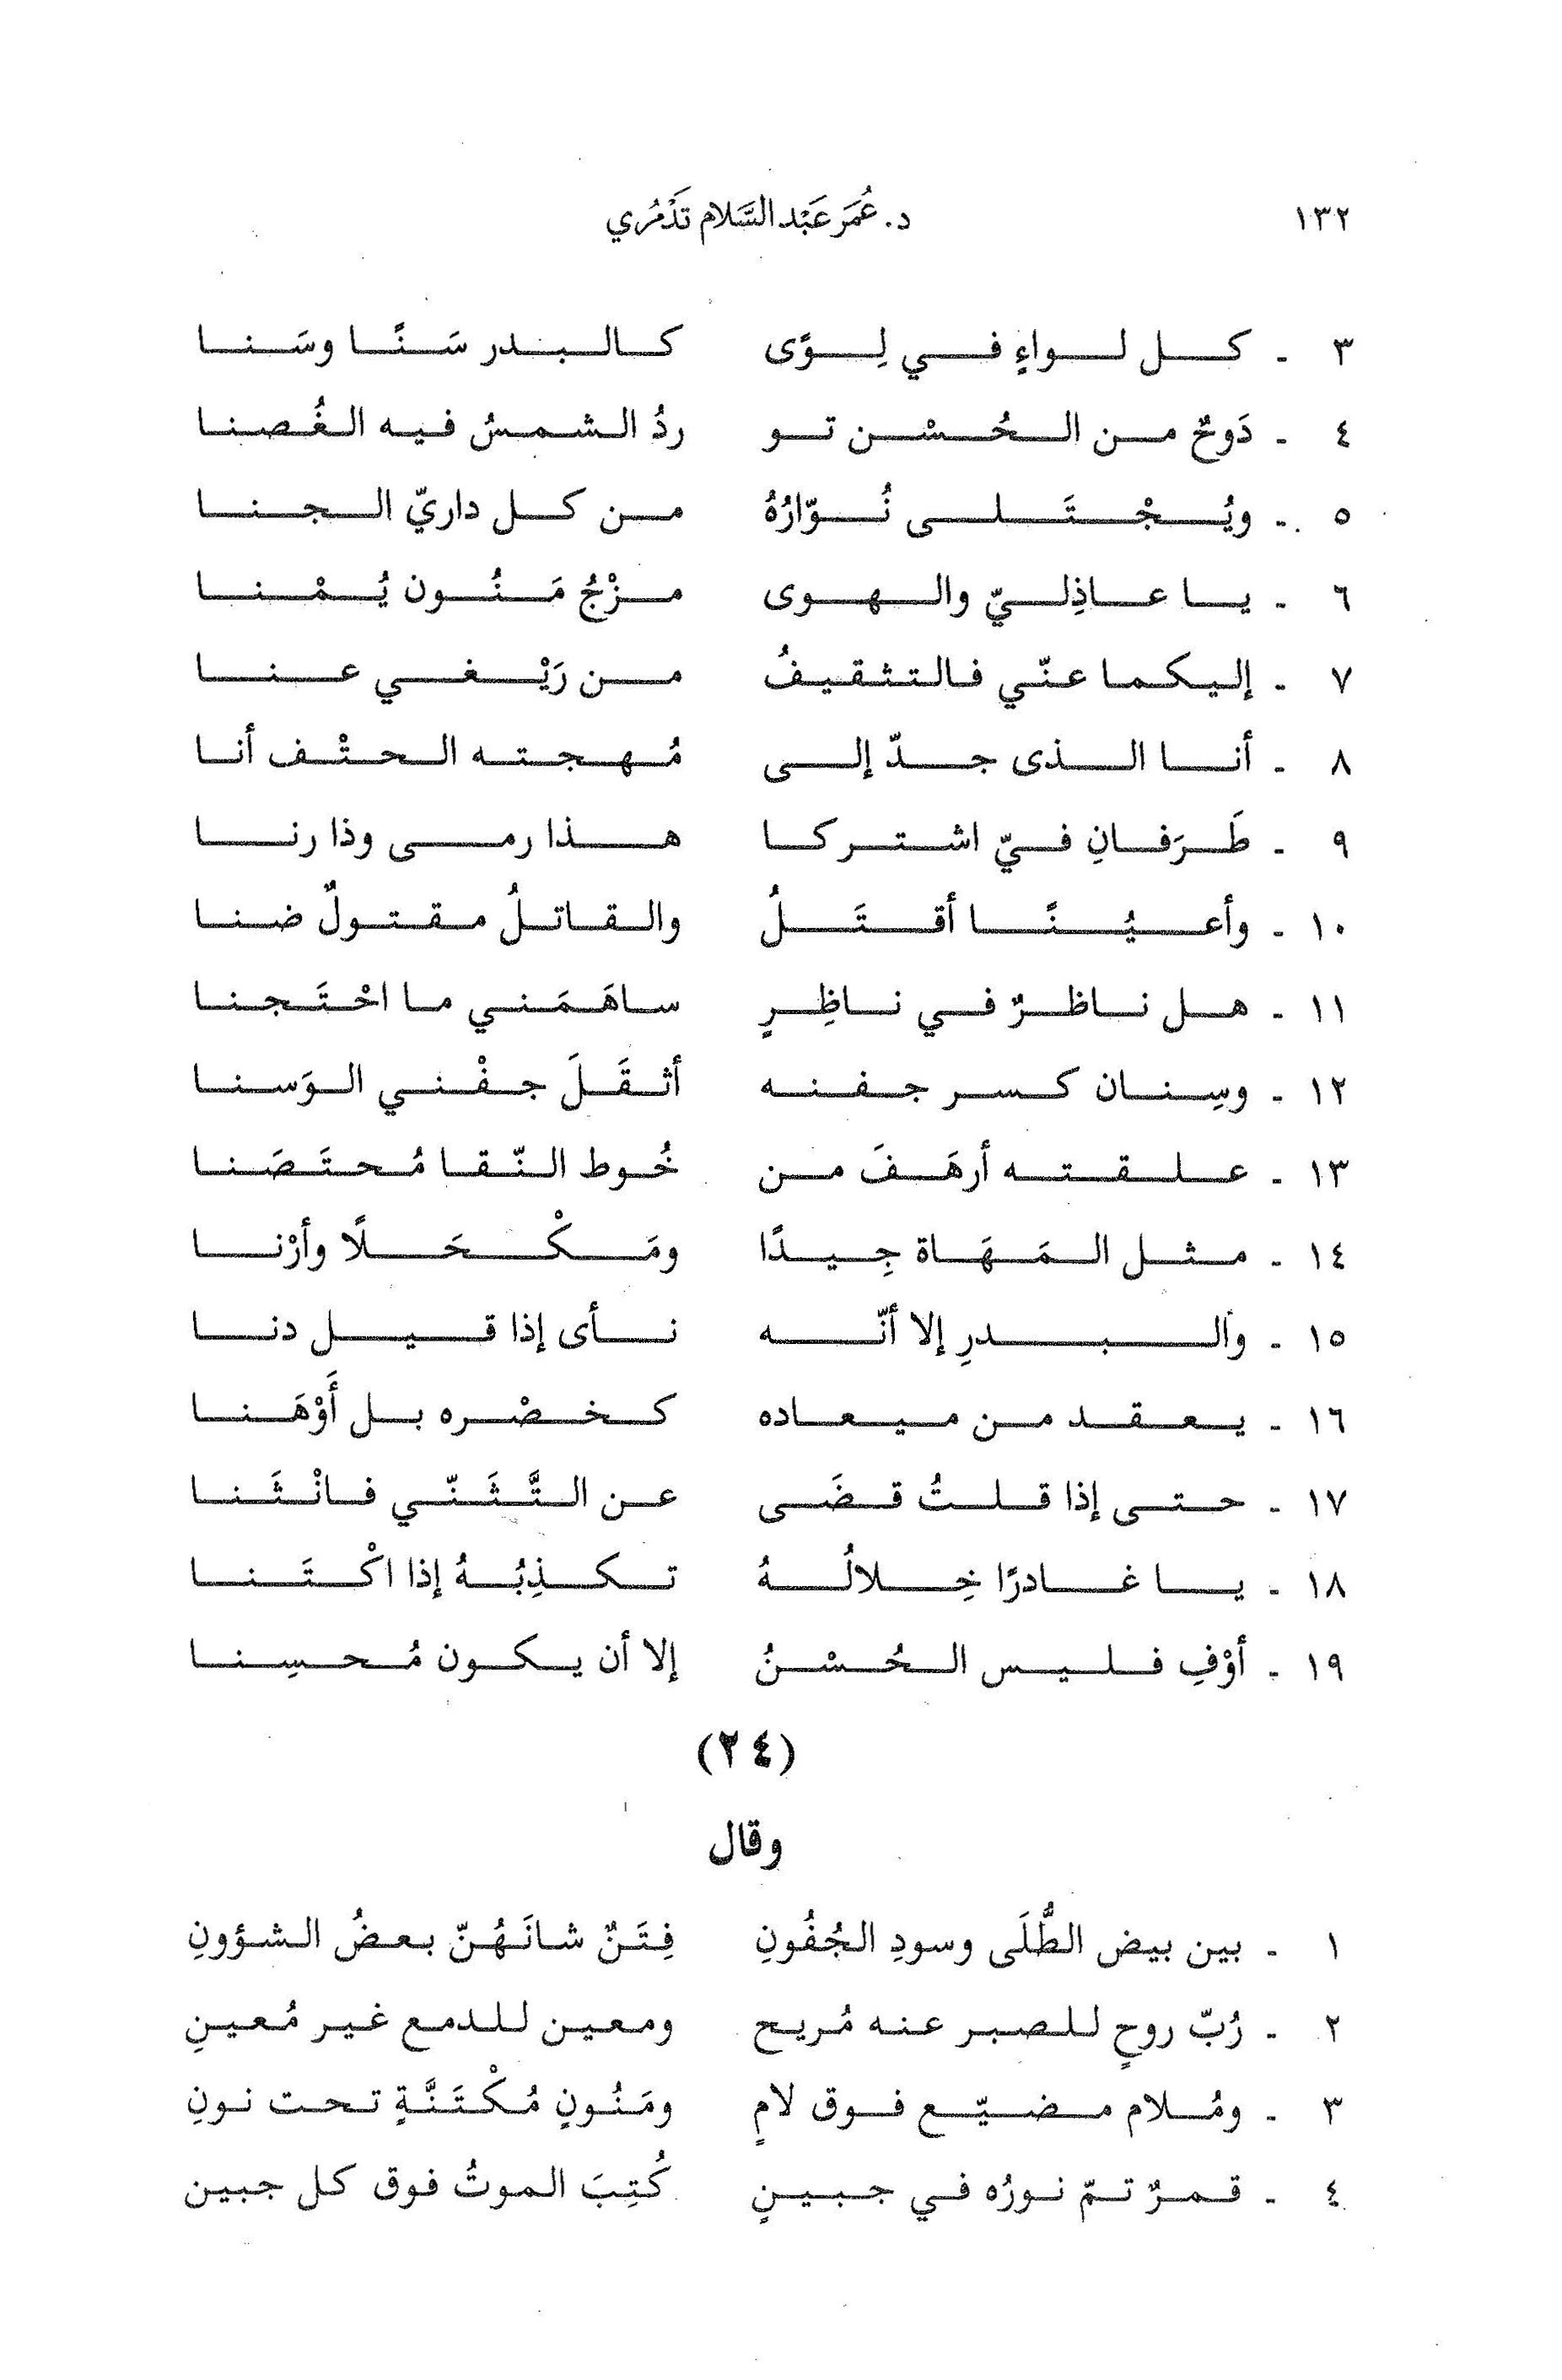 ١٣٢ د. عُمَر عَبْد السَّلام تَدْمُري
٣ - كل لواءٍ في لِوًى كالبدر سَنًا وسَنا
٤ - دَوحٌ من الحُسْن تو ردُ الشمسُ فيه الغُصنا
٥ - ويُجْتَلى نُوّارُهُ من كل داريّ الجنا
٦ - يا عاذِليّ والهوى مزْجُ مَنُون يُمْنا
٧ - إليكما عنّي فالتثقيفُ من رَيْغي عنا
٨ - أنا الذى جدّ إلى مُهجته الحتْف أنا
٩ - طَرَفانِ فيّ اشتركا هذا رمى وذا رنا
١٠ - وأعيُنًا أقتَلُ والقاتلُ مقتولٌ ضنا
١١ - هل ناظرٌ في ناظِرٍ ساهَمَني ما احْتَجنا
١٢ - وسِنان كسر جفنه أثقَلَ جفْني الوَسنا
١٣ - علقته أرهَفَ من خُوط النّقا مُحتَصَنا
١٤ - مثل المَهَاة جِيدًا ومَكْحَلًا وأرْنا
١٥ - والبدرِ إلا أنّه نأى إذا قيل دنا
١٦ - يعقد من ميعاده كخصْره بل أَوْهَنا
١٧ - حتى إذا قلتُ قضَى عن التَّثَنّي فانْثَنا
١٨ - يا غادرًا خِلالُهُ تكذِبُهُ إذا اكْتَنا
١٩ - أوْفِ فليس الحُسْنُ إلا أن يكون مُحسِنا
(٢٤)
وقال
١ - بين بيض الطُّلَى وسودِ الجُفُونِ فِتَنٌ شانَهُنّ بعضُ الشؤونِ
٢ - رُبّ روحٍ للصبر عنه مُريح ومعين للدمع غير مُعينِ
٣ - ومُلام مضيّع فوق لامٍ ومَنُونٍ مُكْتَنَّةٍ تحت نونِ
٤ - قمرٌ تمّ نورُه في جبينٍ كُتِبَ الموتُ فوق كل جبين